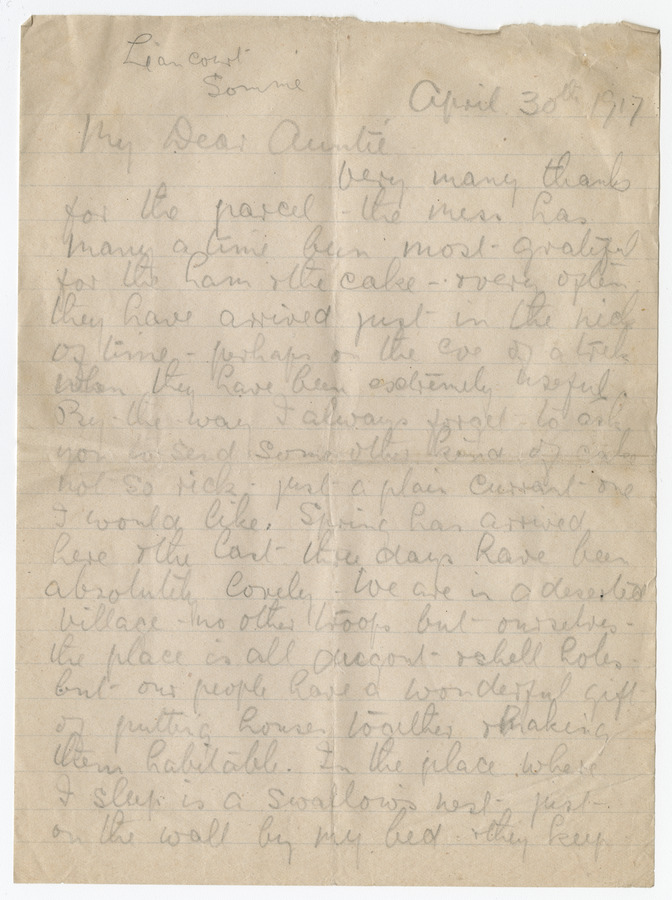 Liancourt
Somme
April 30th 1917
My Dear Auntie
Very many thanks
for the parcel - the mess has
many a time been most grateful
for the ham & the cake - & very often
they have arrived just in the nick
of time - perhaps on the eve of a trek
when they have been extremely useful.
By the way I always forget to ask
you to send some other kind of cake
not so rich - just a plain currant one
I would like. Spring has arrived
here & the last three days have been
absolutely lovely. We are in a deserted
village - no other troops but ourselves -
the place is all & shell holes -
but our people have a wonderful gift
of putting houses together & making
them habitable. In the place where
I sleep is a swallow's nest - just
on the wall by my bed - they keep